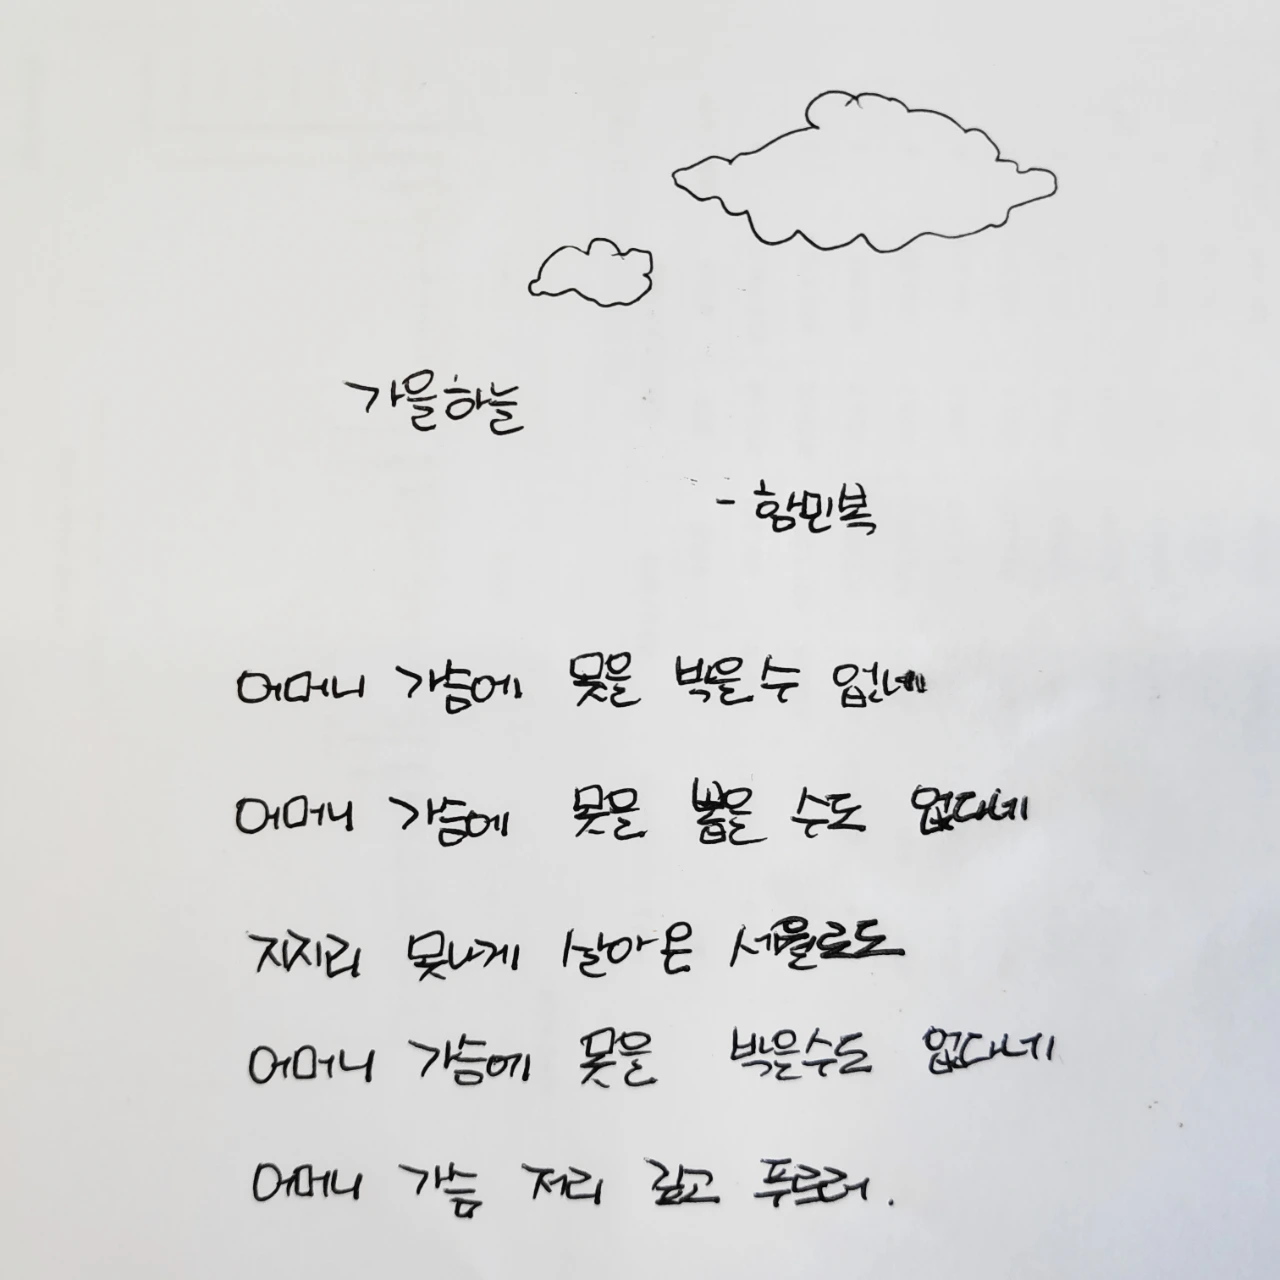 가을하늘
- 함민복
어머니 가슴에 못을 박을수 없네
어머니 가슴에 못을 뽑을 수도 없다네
지지리 못나게 살아온 세월로도
어머니 가슴에 못을 박을수도 없다네
어머니 가슴 저리 깊고 푸르러.